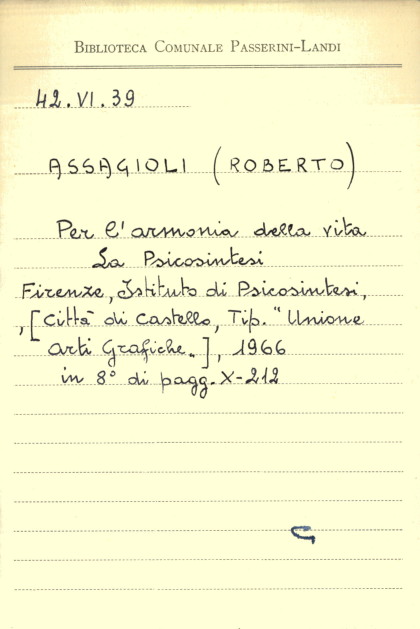 BIBLIOTECA COMUNALE PASSERINI-LANDI
42.VI.39
ASSAGIOLI (ROBERTO)
Per l'armonia della vita
La Psicosintesi
Firenze, Istituto di Psicosintesi,
,[Città di Castello, Tip. "Unione
Arti Grafiche„], 1966
in 8° di pagg. X-212